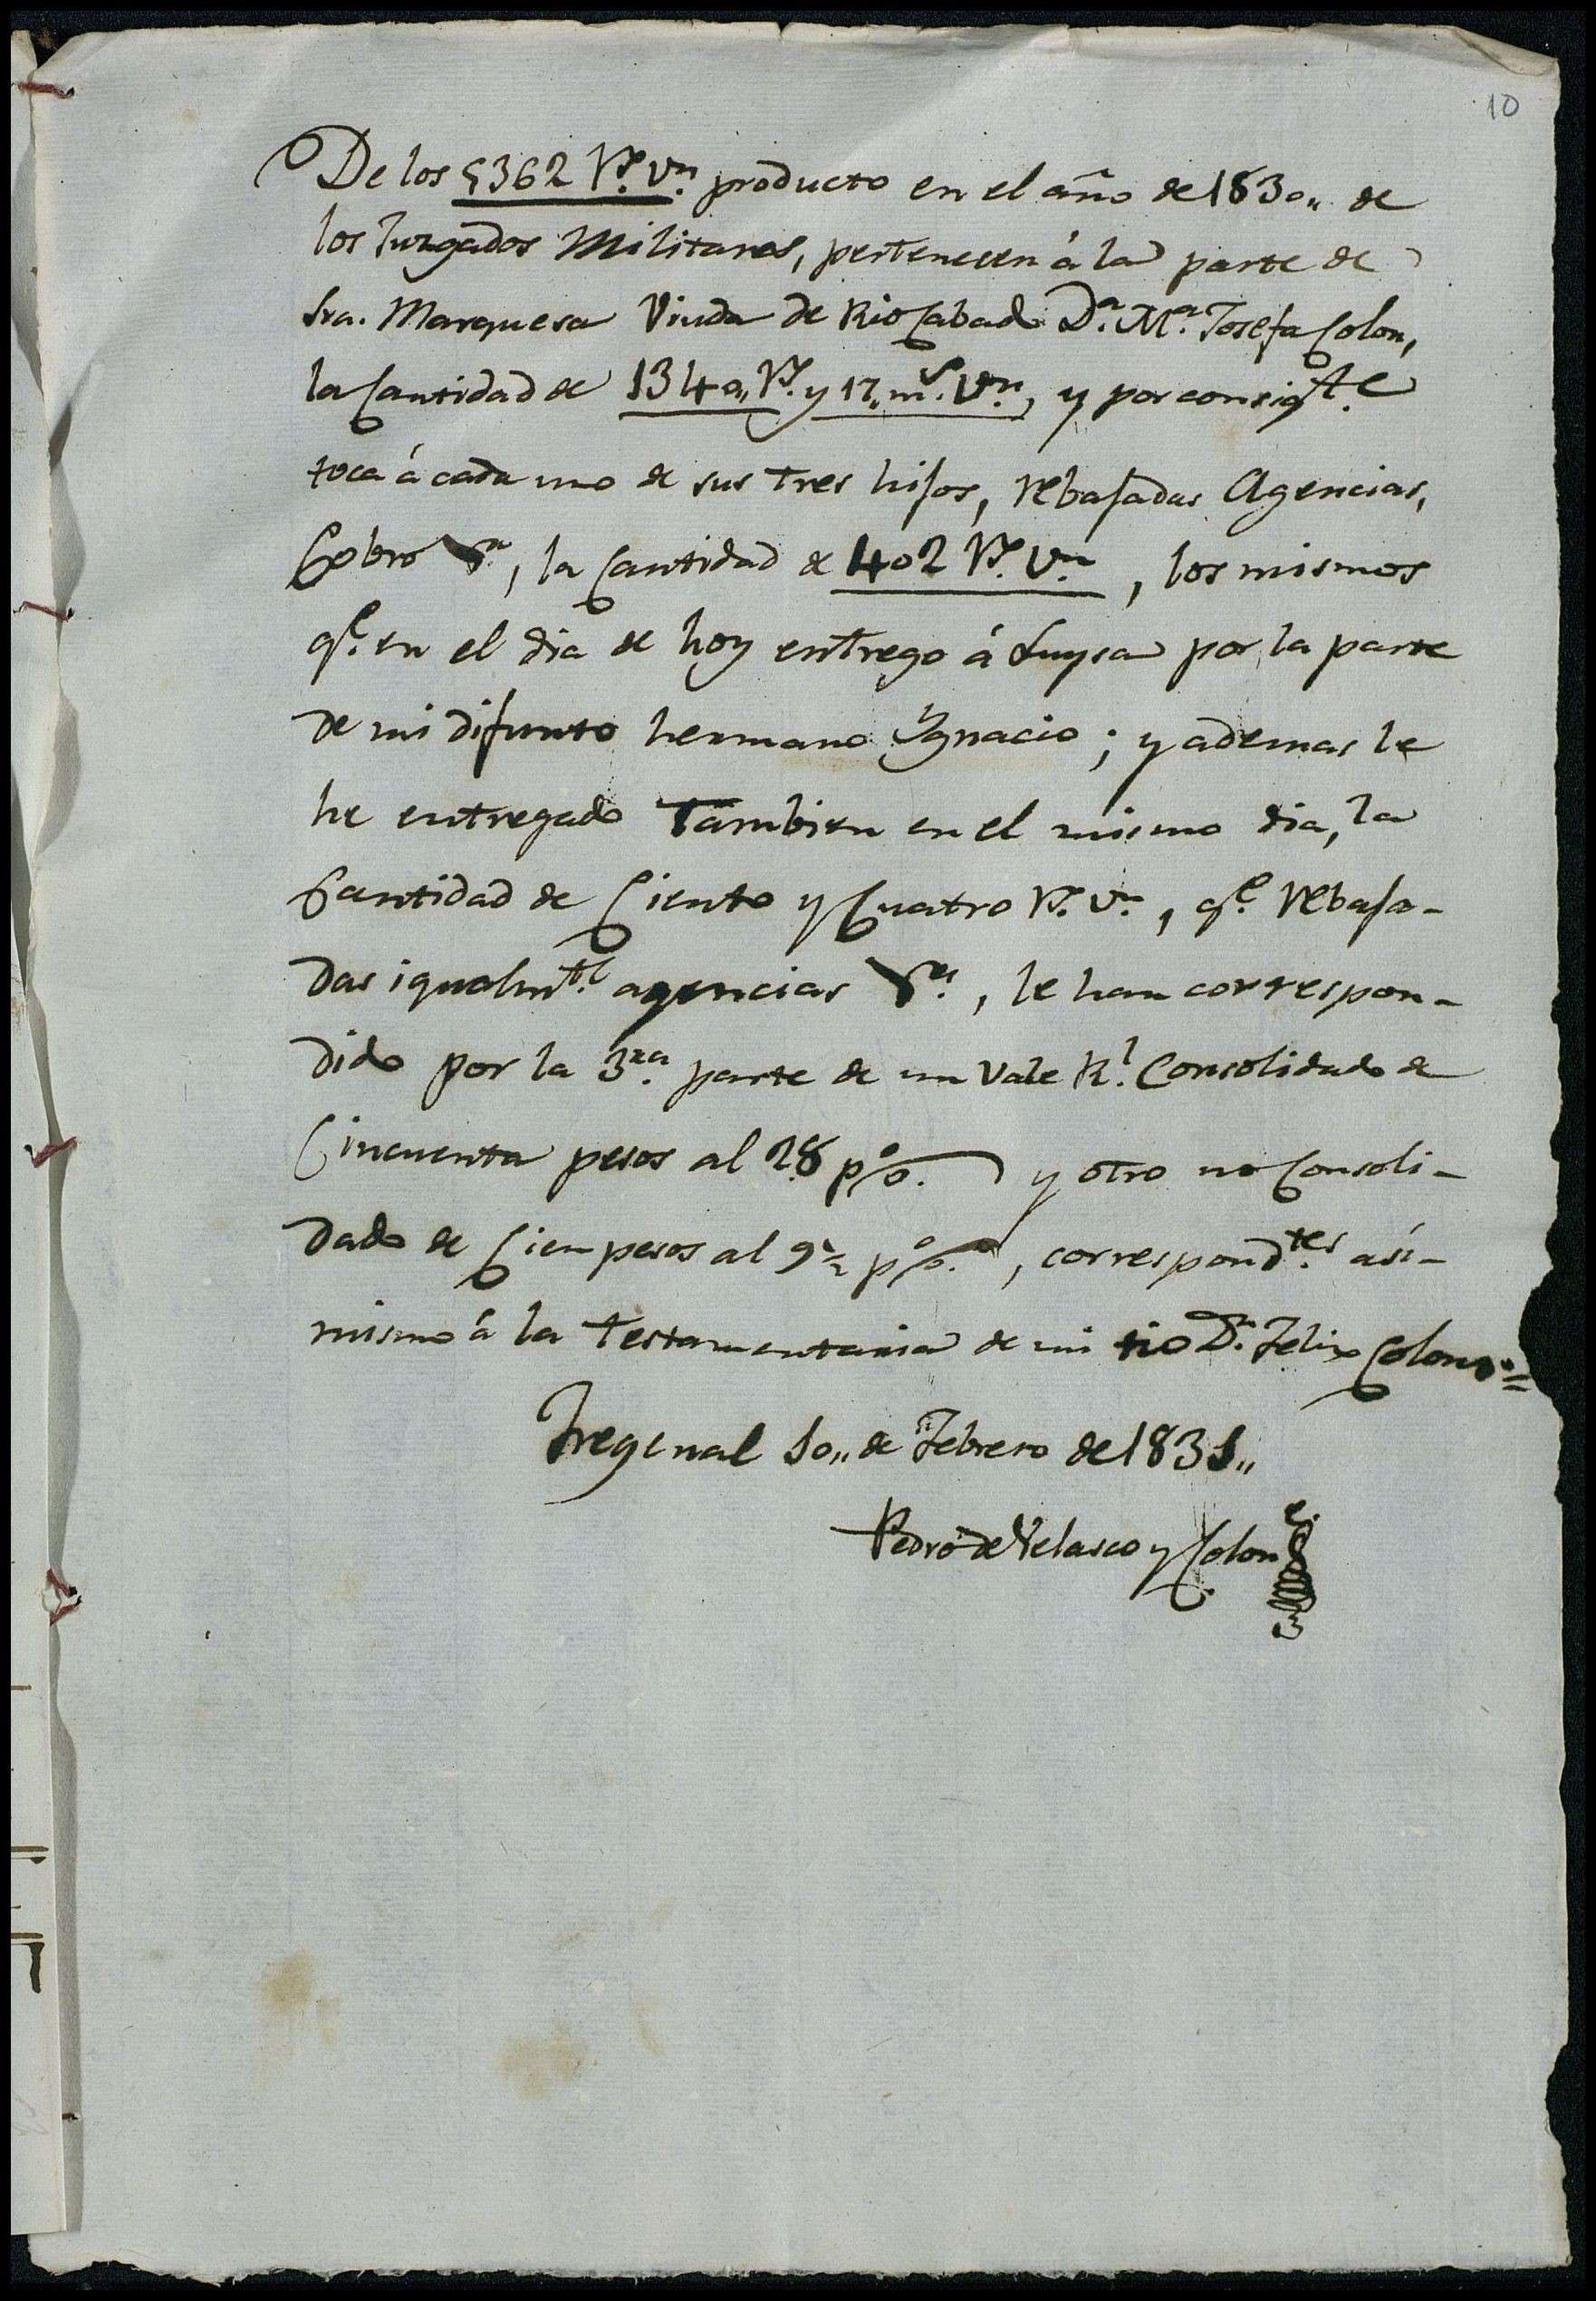 10
De los 5362 r.s v.n producto en el año de 1830,, de
los Juzgados Militares, pertenecen á la parte de
Sra. Marquesa Viuda de Rio Cabado D.a M.a Josefa Colon,
la Cantidad de 1340,, r.s y 17,, m.s v.n, y por consig.te
toca á cada uno de sus tres hijos, rebajadas Agencias,
Cobro &.a, la Cantidad de 402 r.s v.n, los mismos
q.e en el dia de hoy entrego á Luysa por la parte
de mi difunto hermano Ygnacio; y ademas le
he entregado Tambien en el mismo dia, la
Cantidad de Ciento y Cuatro r.s v.n, q.e rebaja-
das igualm.te agencias &.a, le han correspon-
dido por la 3.ra parte de un Vale R.l Consolidado de
Cincuenta pesos al 28 p% y otro no Consoli-
dado de Cien pesos al 9½ p%, correspond.tes así-
mismo á la Testamentaria de mi tio D.n Felix Colon.=
Fregenal 10,, de Febrero de 1831,,
Pedro de Velasco y Colon